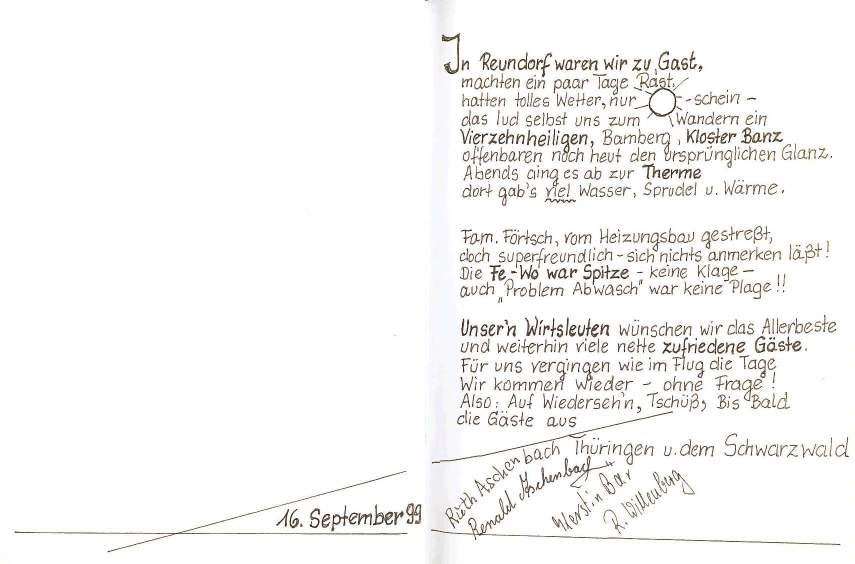 In Reundorf waren wir zu Gast,
machten ein paar Tage Rast,
hatten tolles Wetter, nur -schein -
das lud selbst uns zum Wandern ein
Vierzehnheiligen, Bamberg, Kloster Banz
offenbaren noch heut den ursprünglichen Glanz.
Abends ging es ab zur Therme
dort gab's viel Wasser, Sprudel u. Wärme.
Fam. Förtsch, vom Heizungsbau gestreßt,
doch superfreundlich - sich nichts anmerken läßt!
Die Fe-Wo war Spitze - keine Klage -
auch „Problem Abwasch" war keine Plage!!
Unser'n Wirtsleuten wünschen wir das Allerbeste
und weiterhin viele nette zufriedene Gäste.
Für uns vergingen wie im Flug die Tage
Wir kommen wieder - ohne Frage!
Also: Auf Wiederseh'n, Tschüß, Bis Bald
die Gäste aus
Thüringen u. dem Schwarzwald
16. September 99
Ruth Aschenbach
Renald Aschenbach
Kerstin Bär
R. Willenberg